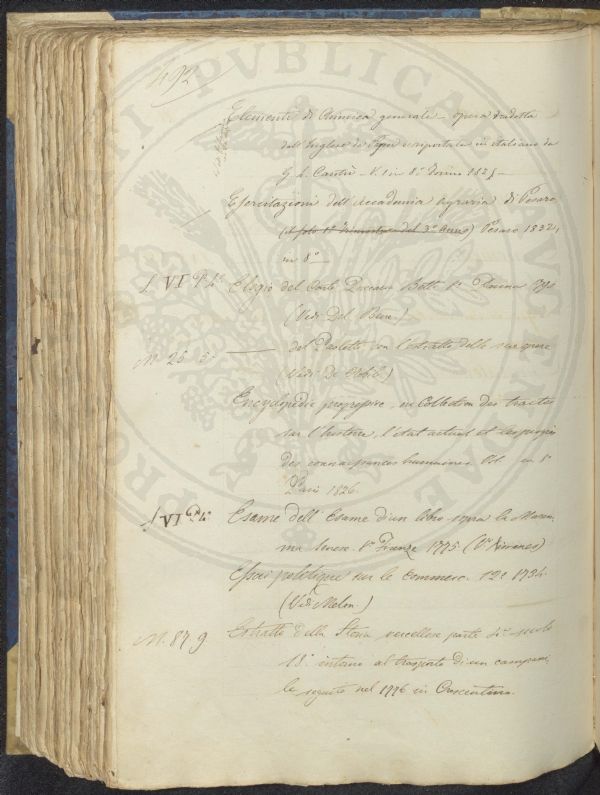 492
Elementi di Chimica generale - opera tradotta
dall'Inglese di e riportata in italiano da
G. L. Cantù - V. 1 in 8° Torino 182
Esercitazioni dell'Accademia Agraria di Pesaro
(il solo 1° trimestre del 3° anno) Pesaro 1832,
in 8°
L VI 4° Elogio del Conte Betti 8° 1790
(Vedi Del Bene)
N. 25 5 — del Paoletti con l'estratto delle sue opere
(Vedi De )
Encyclopedie progressive, ou Collection des traités
sur l'histoire, l'état actuel et les progrès
des connaissances humaines. Vol. in 8°
Paris 1826.
L VI 4° Esame dell'Esame d'un libro sopra la Marem
ma Senese. 8° Firenze 1775 (V. Ximenes)
Essai politique sur le Commerce. 12° 1734.
(Vedi Melon)
N. 87 9 Estratto della Storia parte secolo
18° intorno al trasporto di un campani
le seguito nel 1776 in Crescentino.
PUBLICAE
PRO